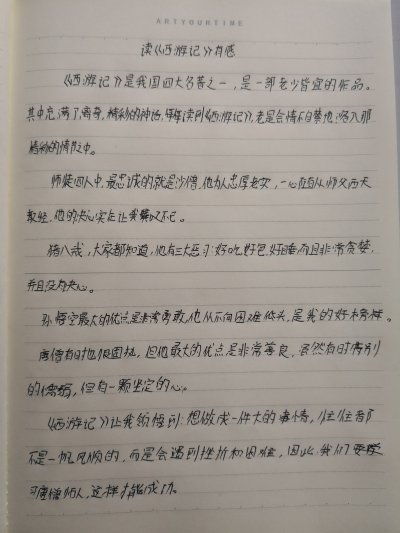 ARTYOURTIME
读《西游记》有感
《西游记》是我国四大名著之一，是一部老少皆宜的作品。
其中充满了离奇，精彩的神话，每每读到《西游记》，老是会情不自禁地陷入那
精彩的情节之中。
师徒四人中，最忠诚的就是沙僧，他为人忠厚老实，一心只为从师父西天
取经，他的决心实在让我敬叹不已。
猪八戒，大家都知道，他有三大恶习：好吃，好色，好睡而且非常贪婪，
并且没有决心。
孙悟空最大的优点是非常勇敢，他从不向困难低头，是我的好榜样。
唐僧有时也很固执，但他最大的优点是非常善良，虽然有时特别
的懦弱，但有一颗坚定的心。
《西游记》让我领悟到：想做成一件大的事情，往往都
不是一帆风顺的，而是会遇到挫折和困难，因此，我们要学
习唐僧师人，这样才能成功。